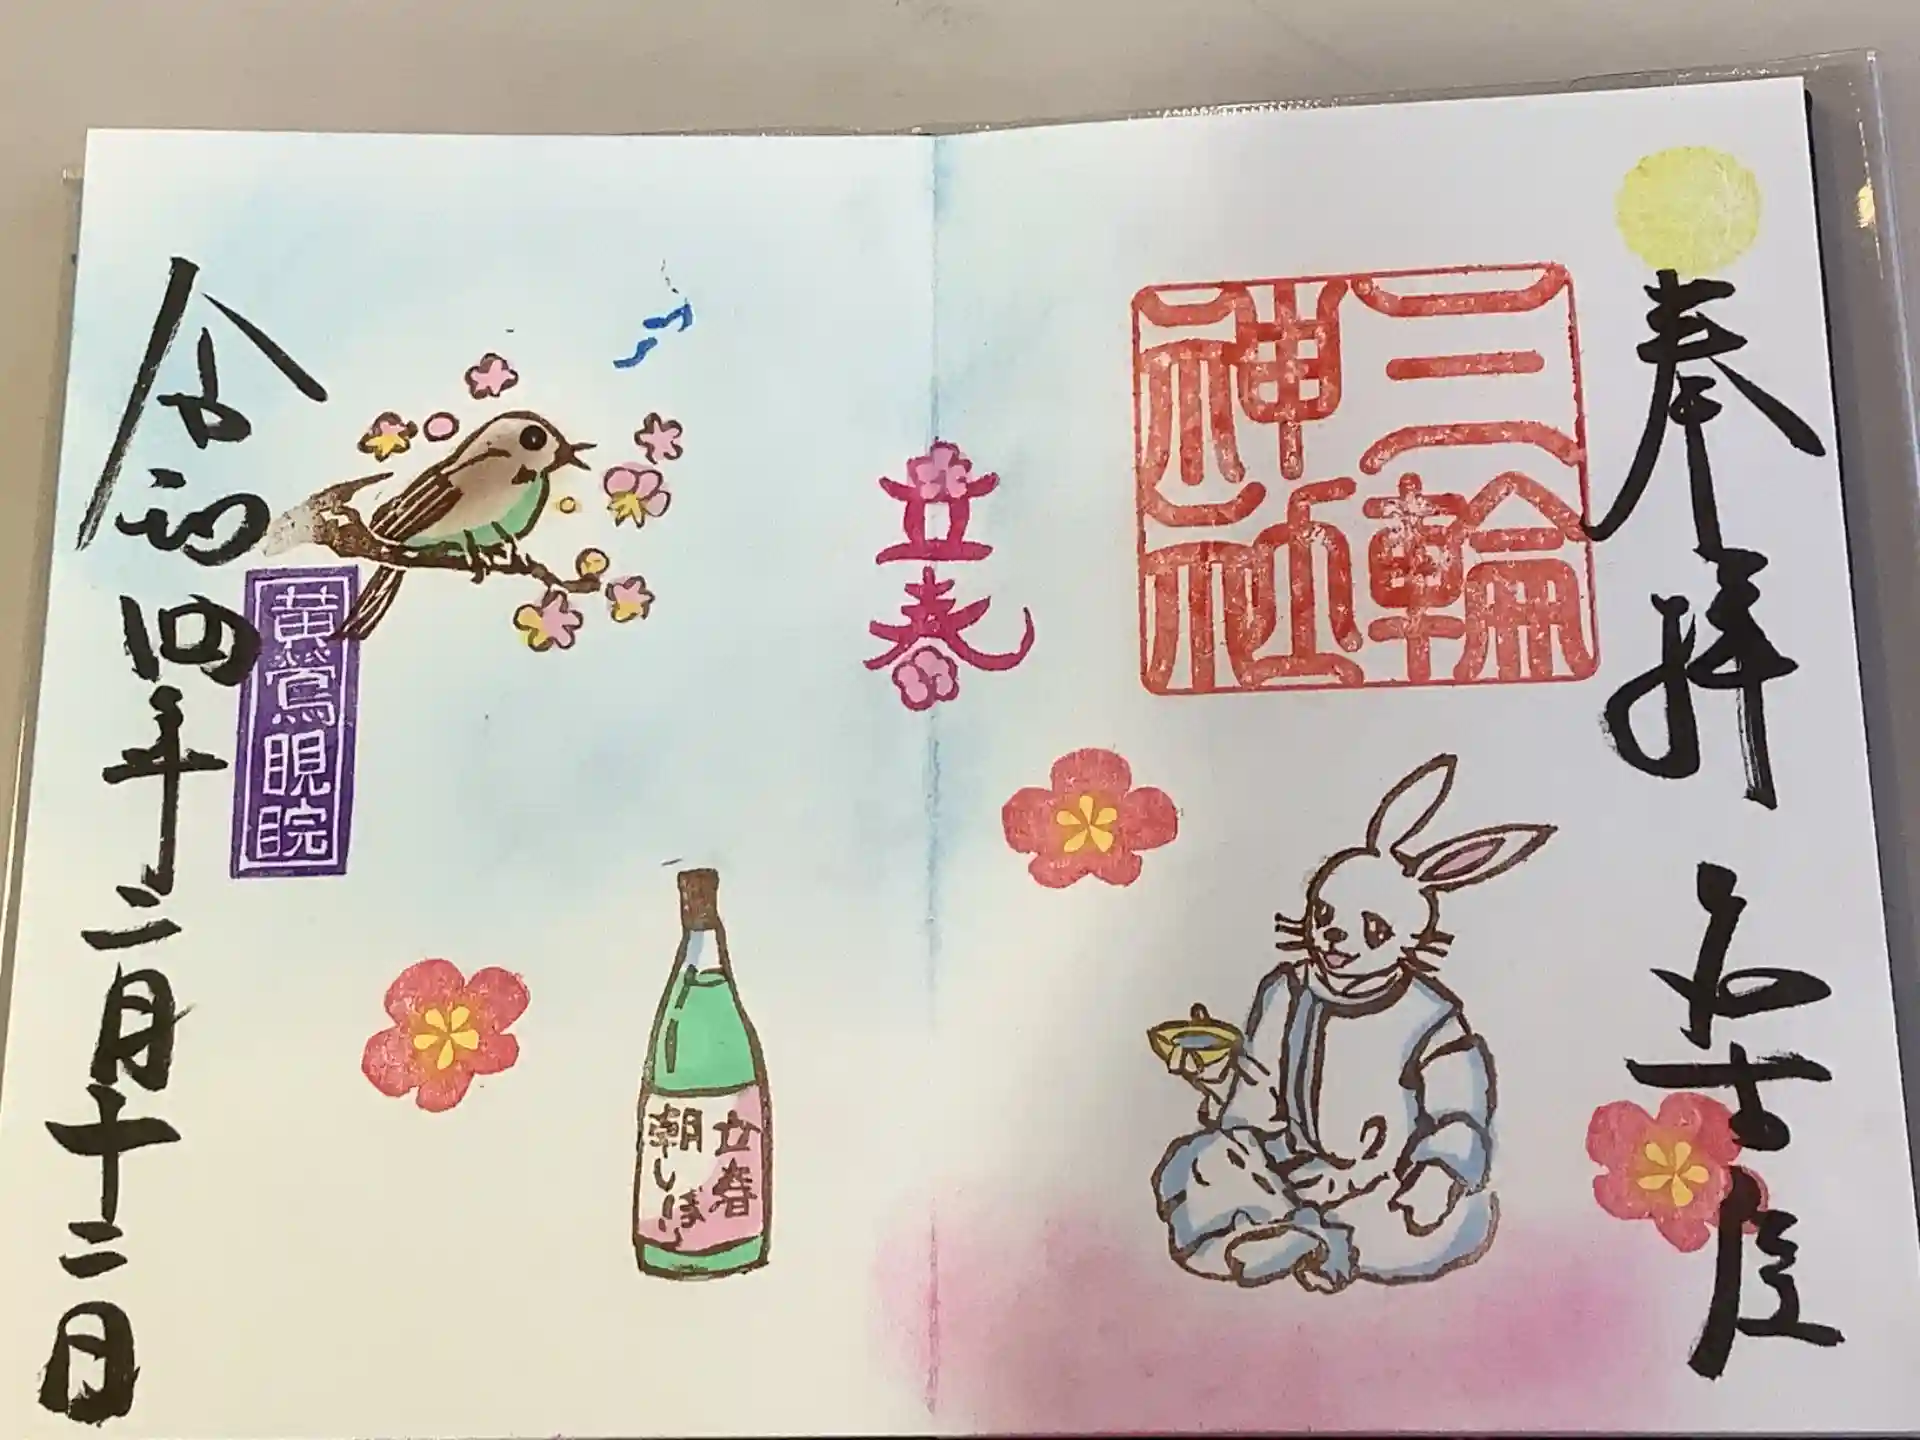 奉拝 名古屋
三輪
神社
立春
立春
朝しぼり
黄鶯睍睆
令和四年二月十二日